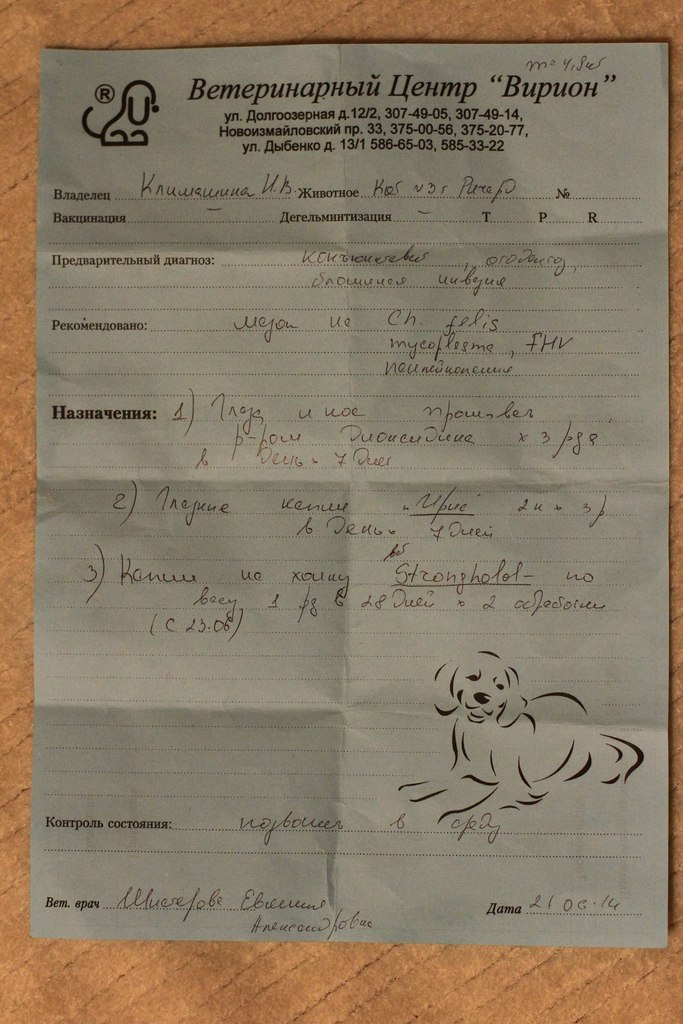 m= 4,9кг
®
Ветеринарный Центр “Вирион”
ул. Долгоозерная д.12/2, 307-49-05, 307-49-14,
Новоизмайловский пр. 33, 375-00-56, 375-20-77,
ул. Дыбенко д. 13/1 586-65-03, 585-33-22
Владелец Климашина И.В. Животное Кот ~3г Ричард №
Вакцинация – Дегельминтизация – T P R
Предварительный диагноз: конъюнктивит, отодектоз,
блошиная инвазия
Рекомендовано: мазок на Ch. felis
mycoplasma, FHV
панлейкопения
Назначения: 1) Глаза и нос промыват
р-ром Диоксидина х 3 раза
в День х 7 Дней
2) Глазные капли "Ирис" 2к х 3р
в День х 7 Дней
3) Капли на холку Stronghold – по
весу 1 раз в 28 Дней х 2 обработки
(с 23.06)
Контроль состояния: позвонить в среду
Вет. врач Евгения
Александровна
Дата 21 06.14